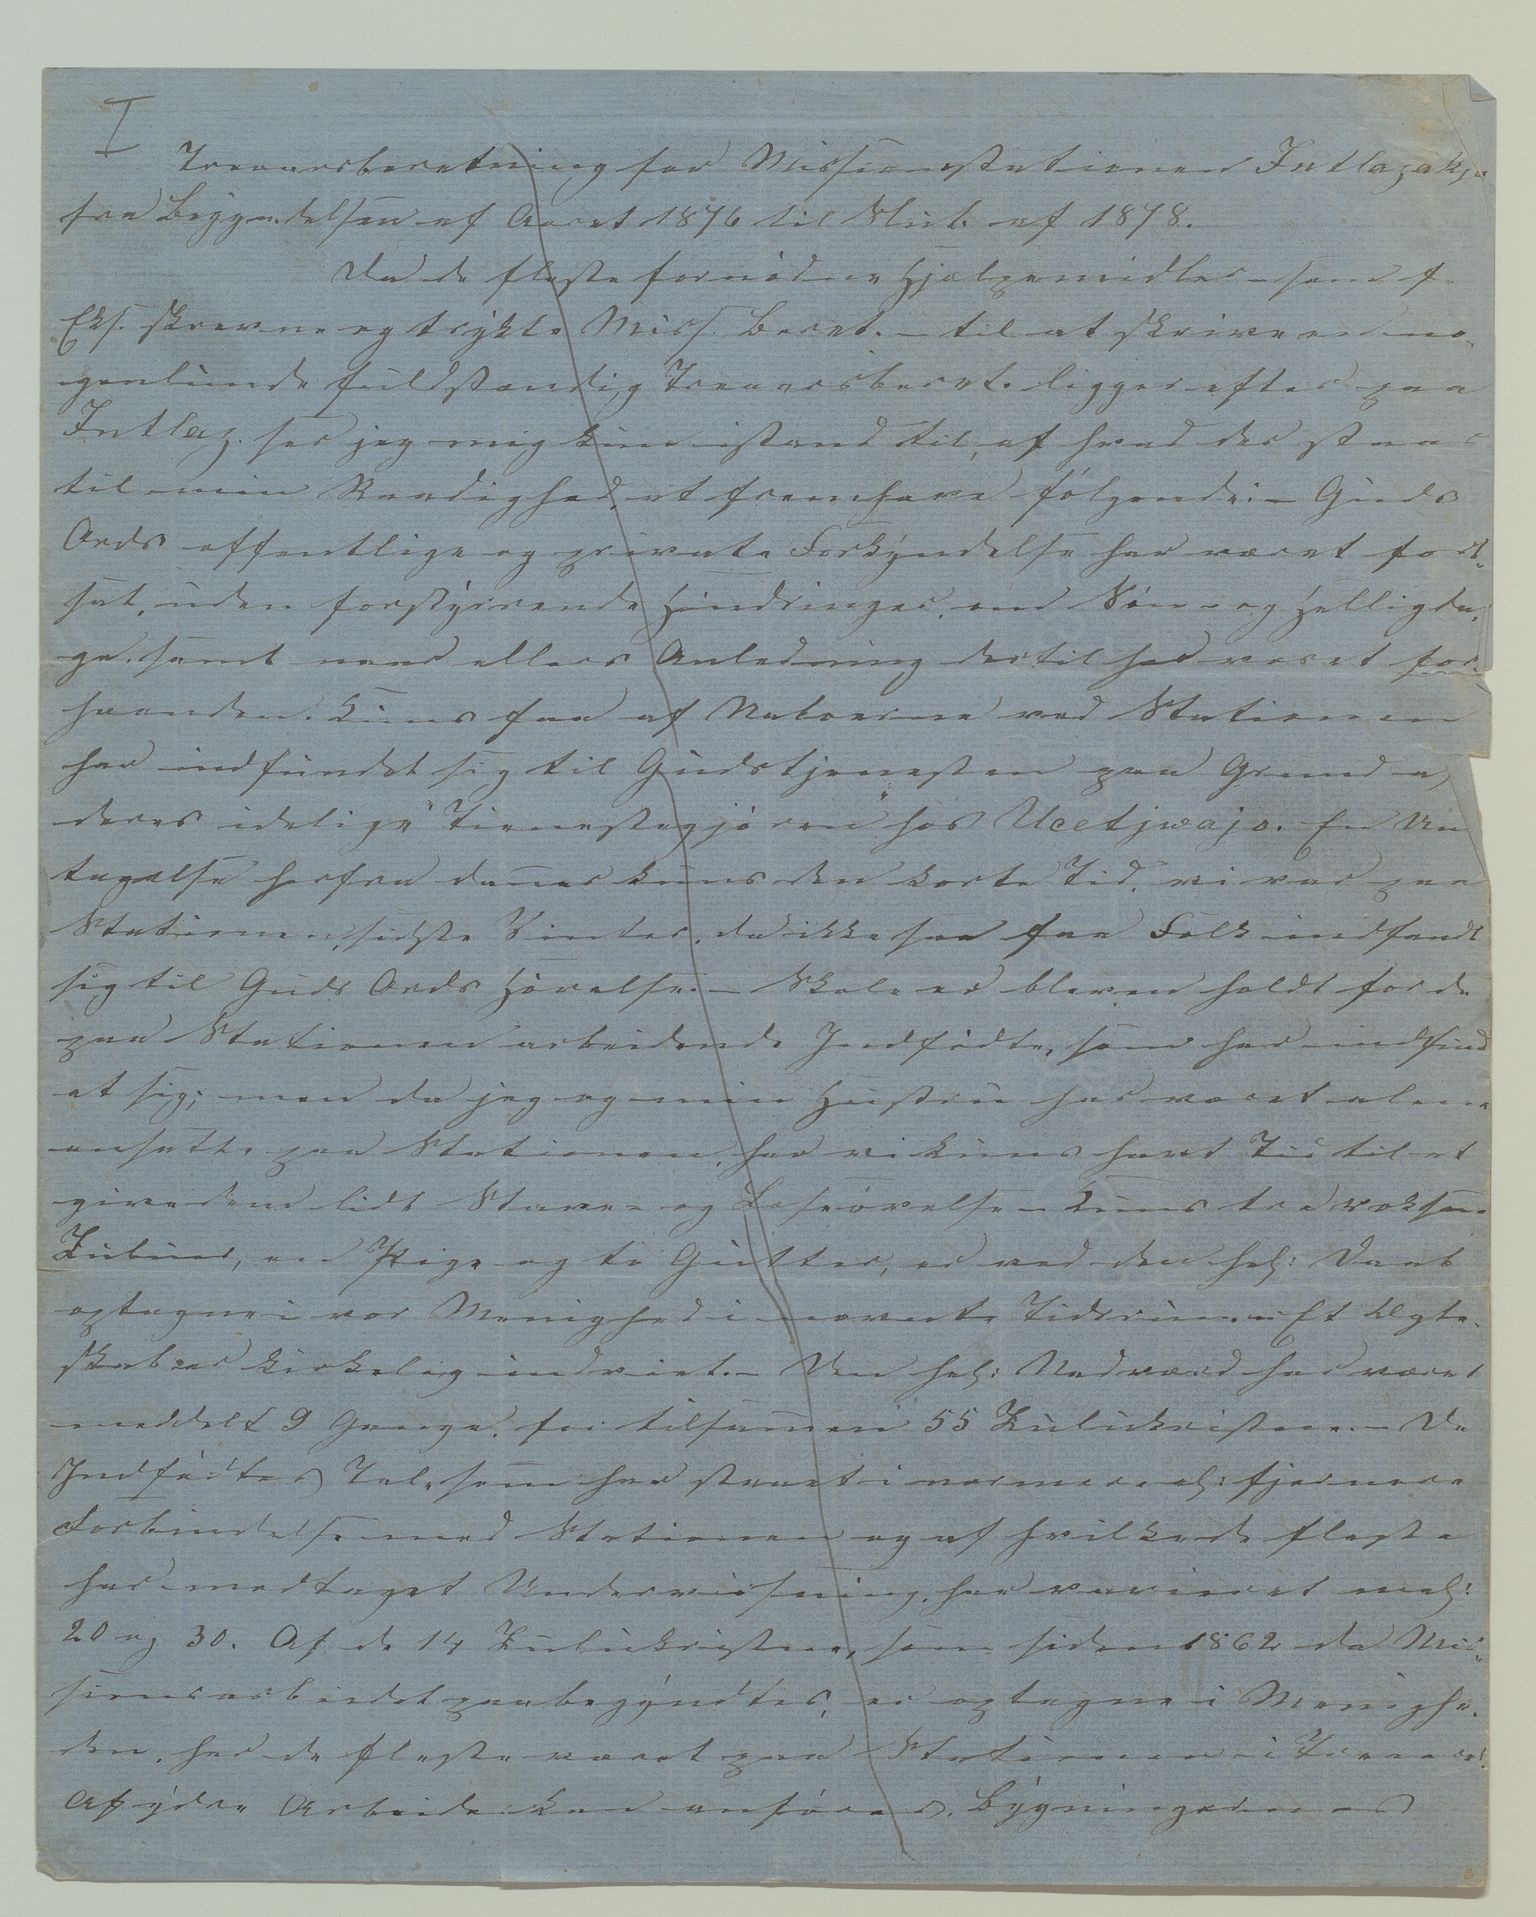 I
Treaarsberetning for Missionsstationen Intlazakje
fra Begyndelsen af Aaret 1876 til Slut. af 1878.
Da de fleste fornødne Hjælpemidler – som f.
Eks. skrevne og trykte Miss. Beret. – til at skrive en no-
genlunde fuldstændig Treaarsberet. ligger efter paa
Intlaz. ser jeg mig kun istand til, af hvad der staar
til min Raadighed, at fremhæve følgende: – Guds
Ords offentlige og private Forkyndelse har været fort-
sat, uden forstyrrende Hindringer, om Søn- og Helligda-
ge, samt naar ellers Anledning dertil har været for-
haanden. Kuns faa af Naboerne ved Stationen
har indfundet sig til Gudstjenesten paa Grund a,
deres idelige "Tienestegjøren" hos Ucetjwajo. En Un
tagelse herfra danner kuns den korte Tid, vi var paa
Stationen, sidste Vinter, da ikke saa faa Folk indfandt
sig til Guds Ords Hørelse. – Skole er bleven holdt for de
paa Stationen arbeidende Indfødte, som har indfund
et sig; men da jeg og min Hustru har været alene
ansatte paa Stationen, har vi kuns havt Tid til at
give dem lidt Stave- og Læseøvelse – Kuns tre voksne
Zuluer, en Pige og to Gutter, er ved den hel: Daab
optagne i vor Menighed i nævnte Tidsrum. – Et Ægte-
skab er kirkelig indviet. – Den hel: Nadværd har været
meddelt 9 Gange, for tilsammen 55 Zulukristne. – De
Indfødtes Tal, som har staaet i nærmere el: fjernere
Forbindelse med Stationen og af hvilke de fleste
har modtaget Undervisning, har varieret mel:
20 og 30. Af de 14 Zulukristne, som siden 1862 da Mis-
sionsarbeidet paabegyndtes, er optagne i Menighe-
den, har de fleste været paa Stationen i Treaaret.
Af ydre Arbeide kan anføres, Bygningernes